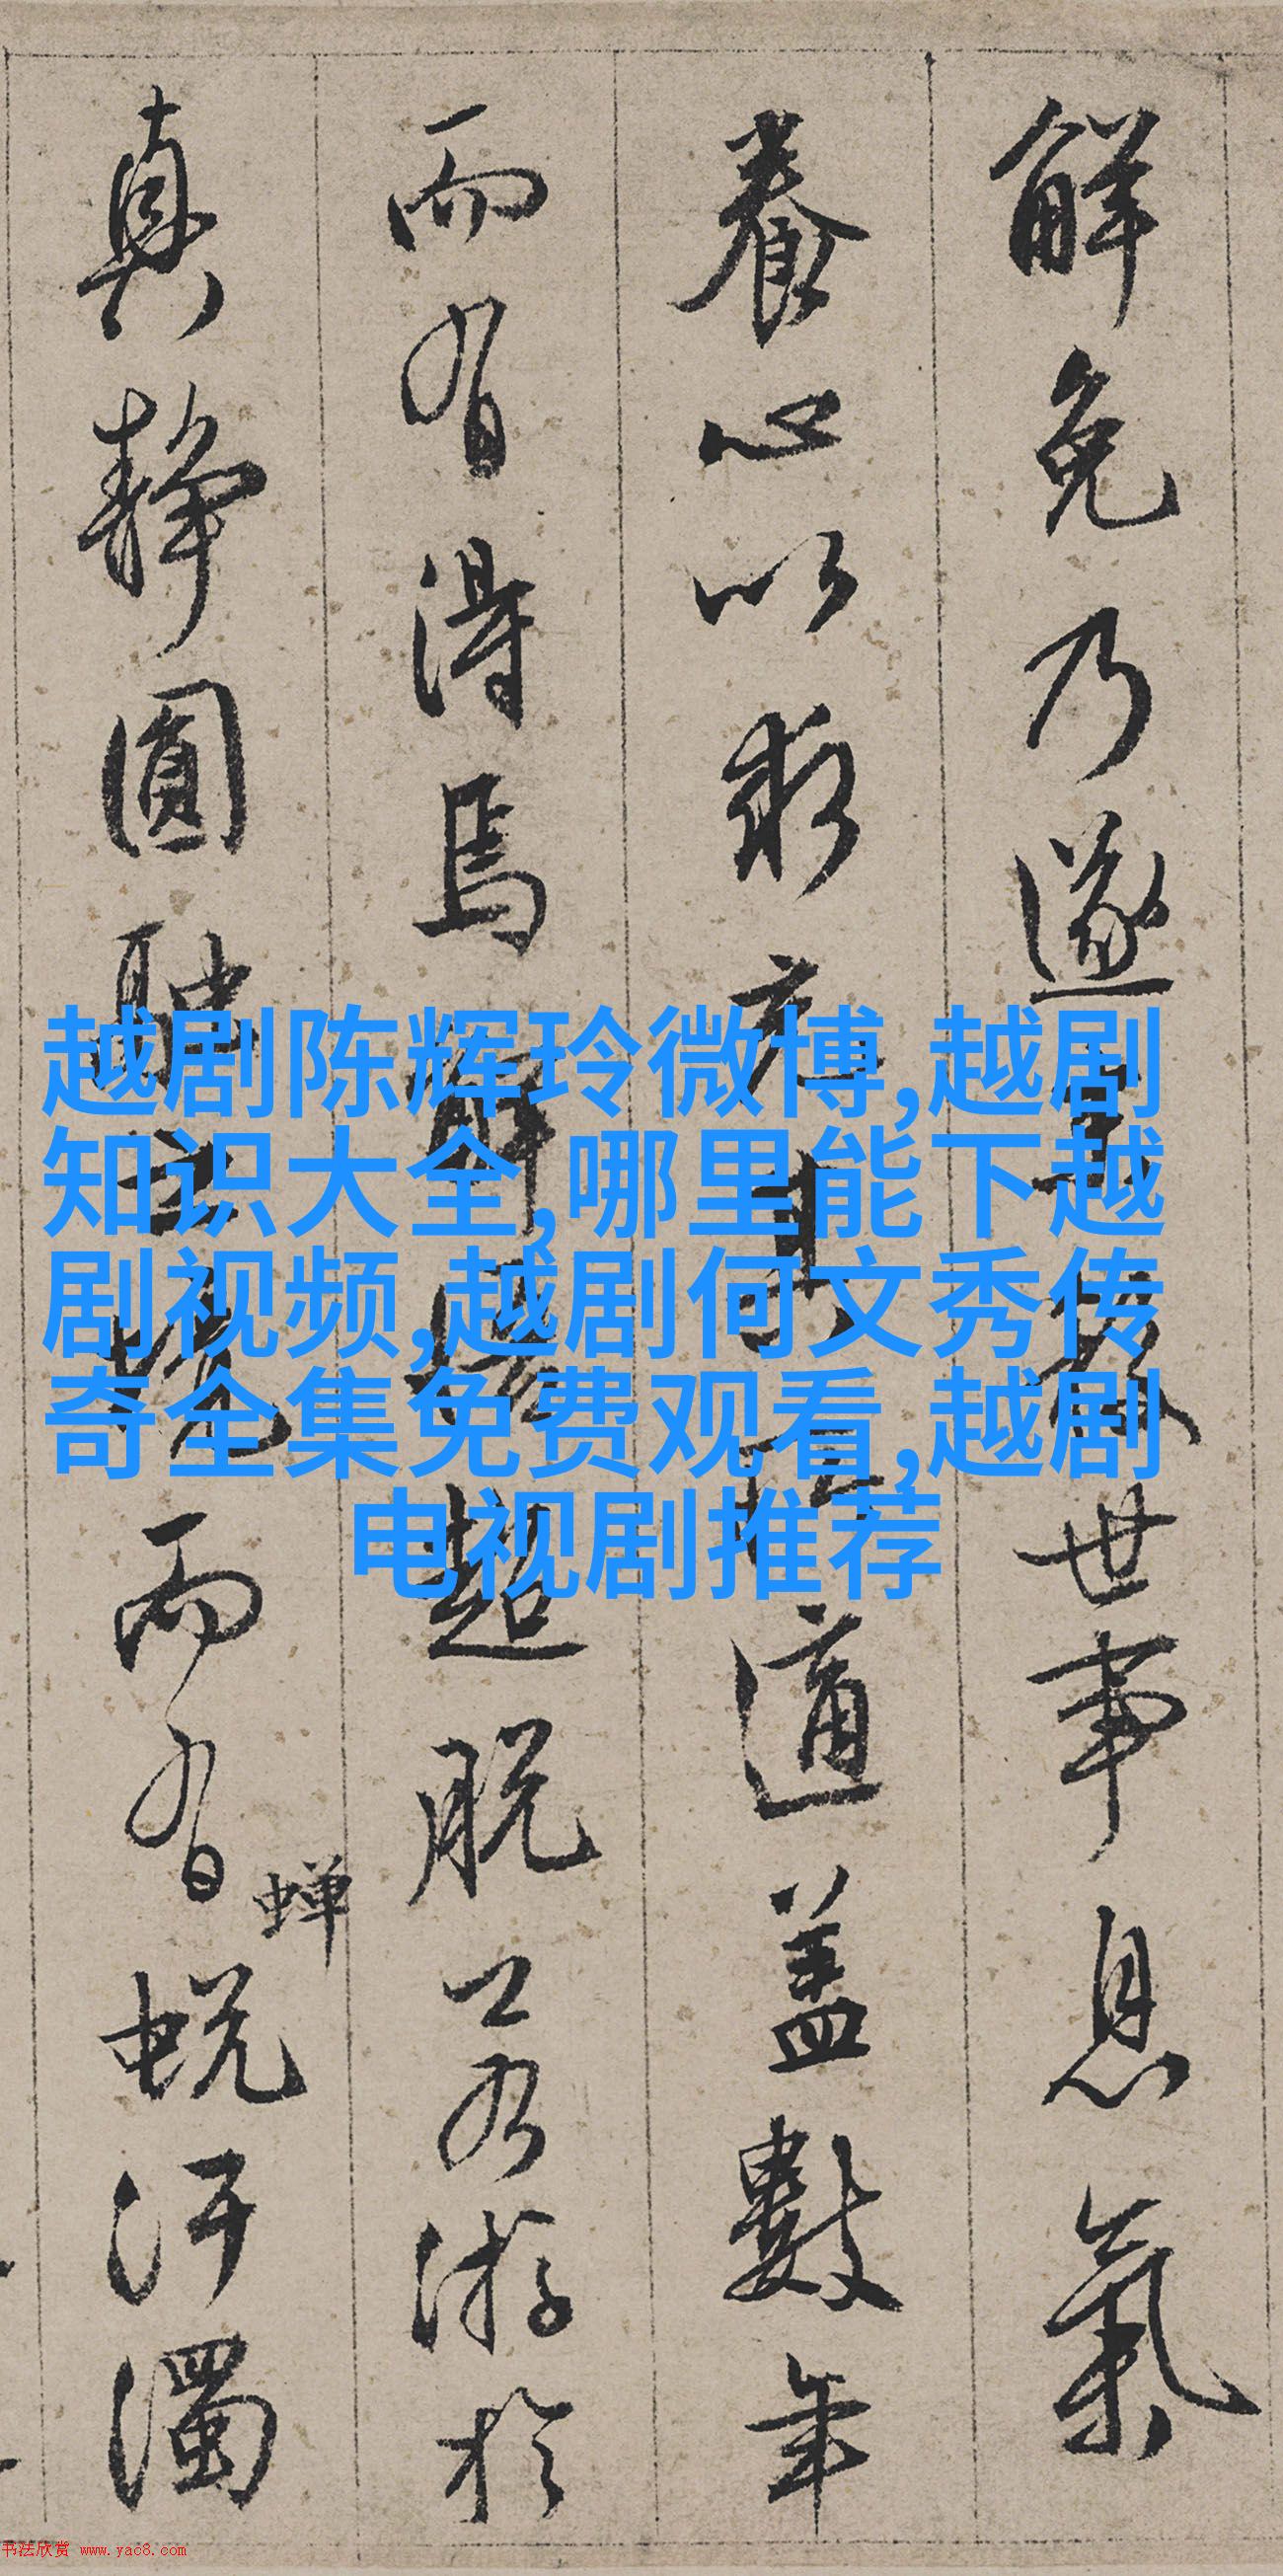 解免乃遂世事息氣
養心以求其適盖數年
而有得焉解超脱游於
真靜圓而有蟬蜕汙濁
越剧陈辉玲微博,越剧
知识大全,哪里能下越
剧视频,越剧何文秀传
奇全集免费观看,越剧
电视剧推荐
书法欣赏 www.yac8.com